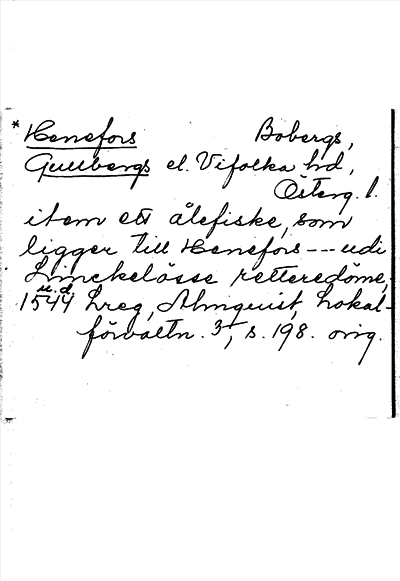 * Henefors Bobergs,
Gullbergs el. Vifolka hd,
Österg. l.
item ett ålefiske, som
ligger till Henefors --- udi
Linckelösse retteredöme,
u. d.
1544 Lreg, Almquist, Lokal-
förvaltn. 3, s. 198. orig.